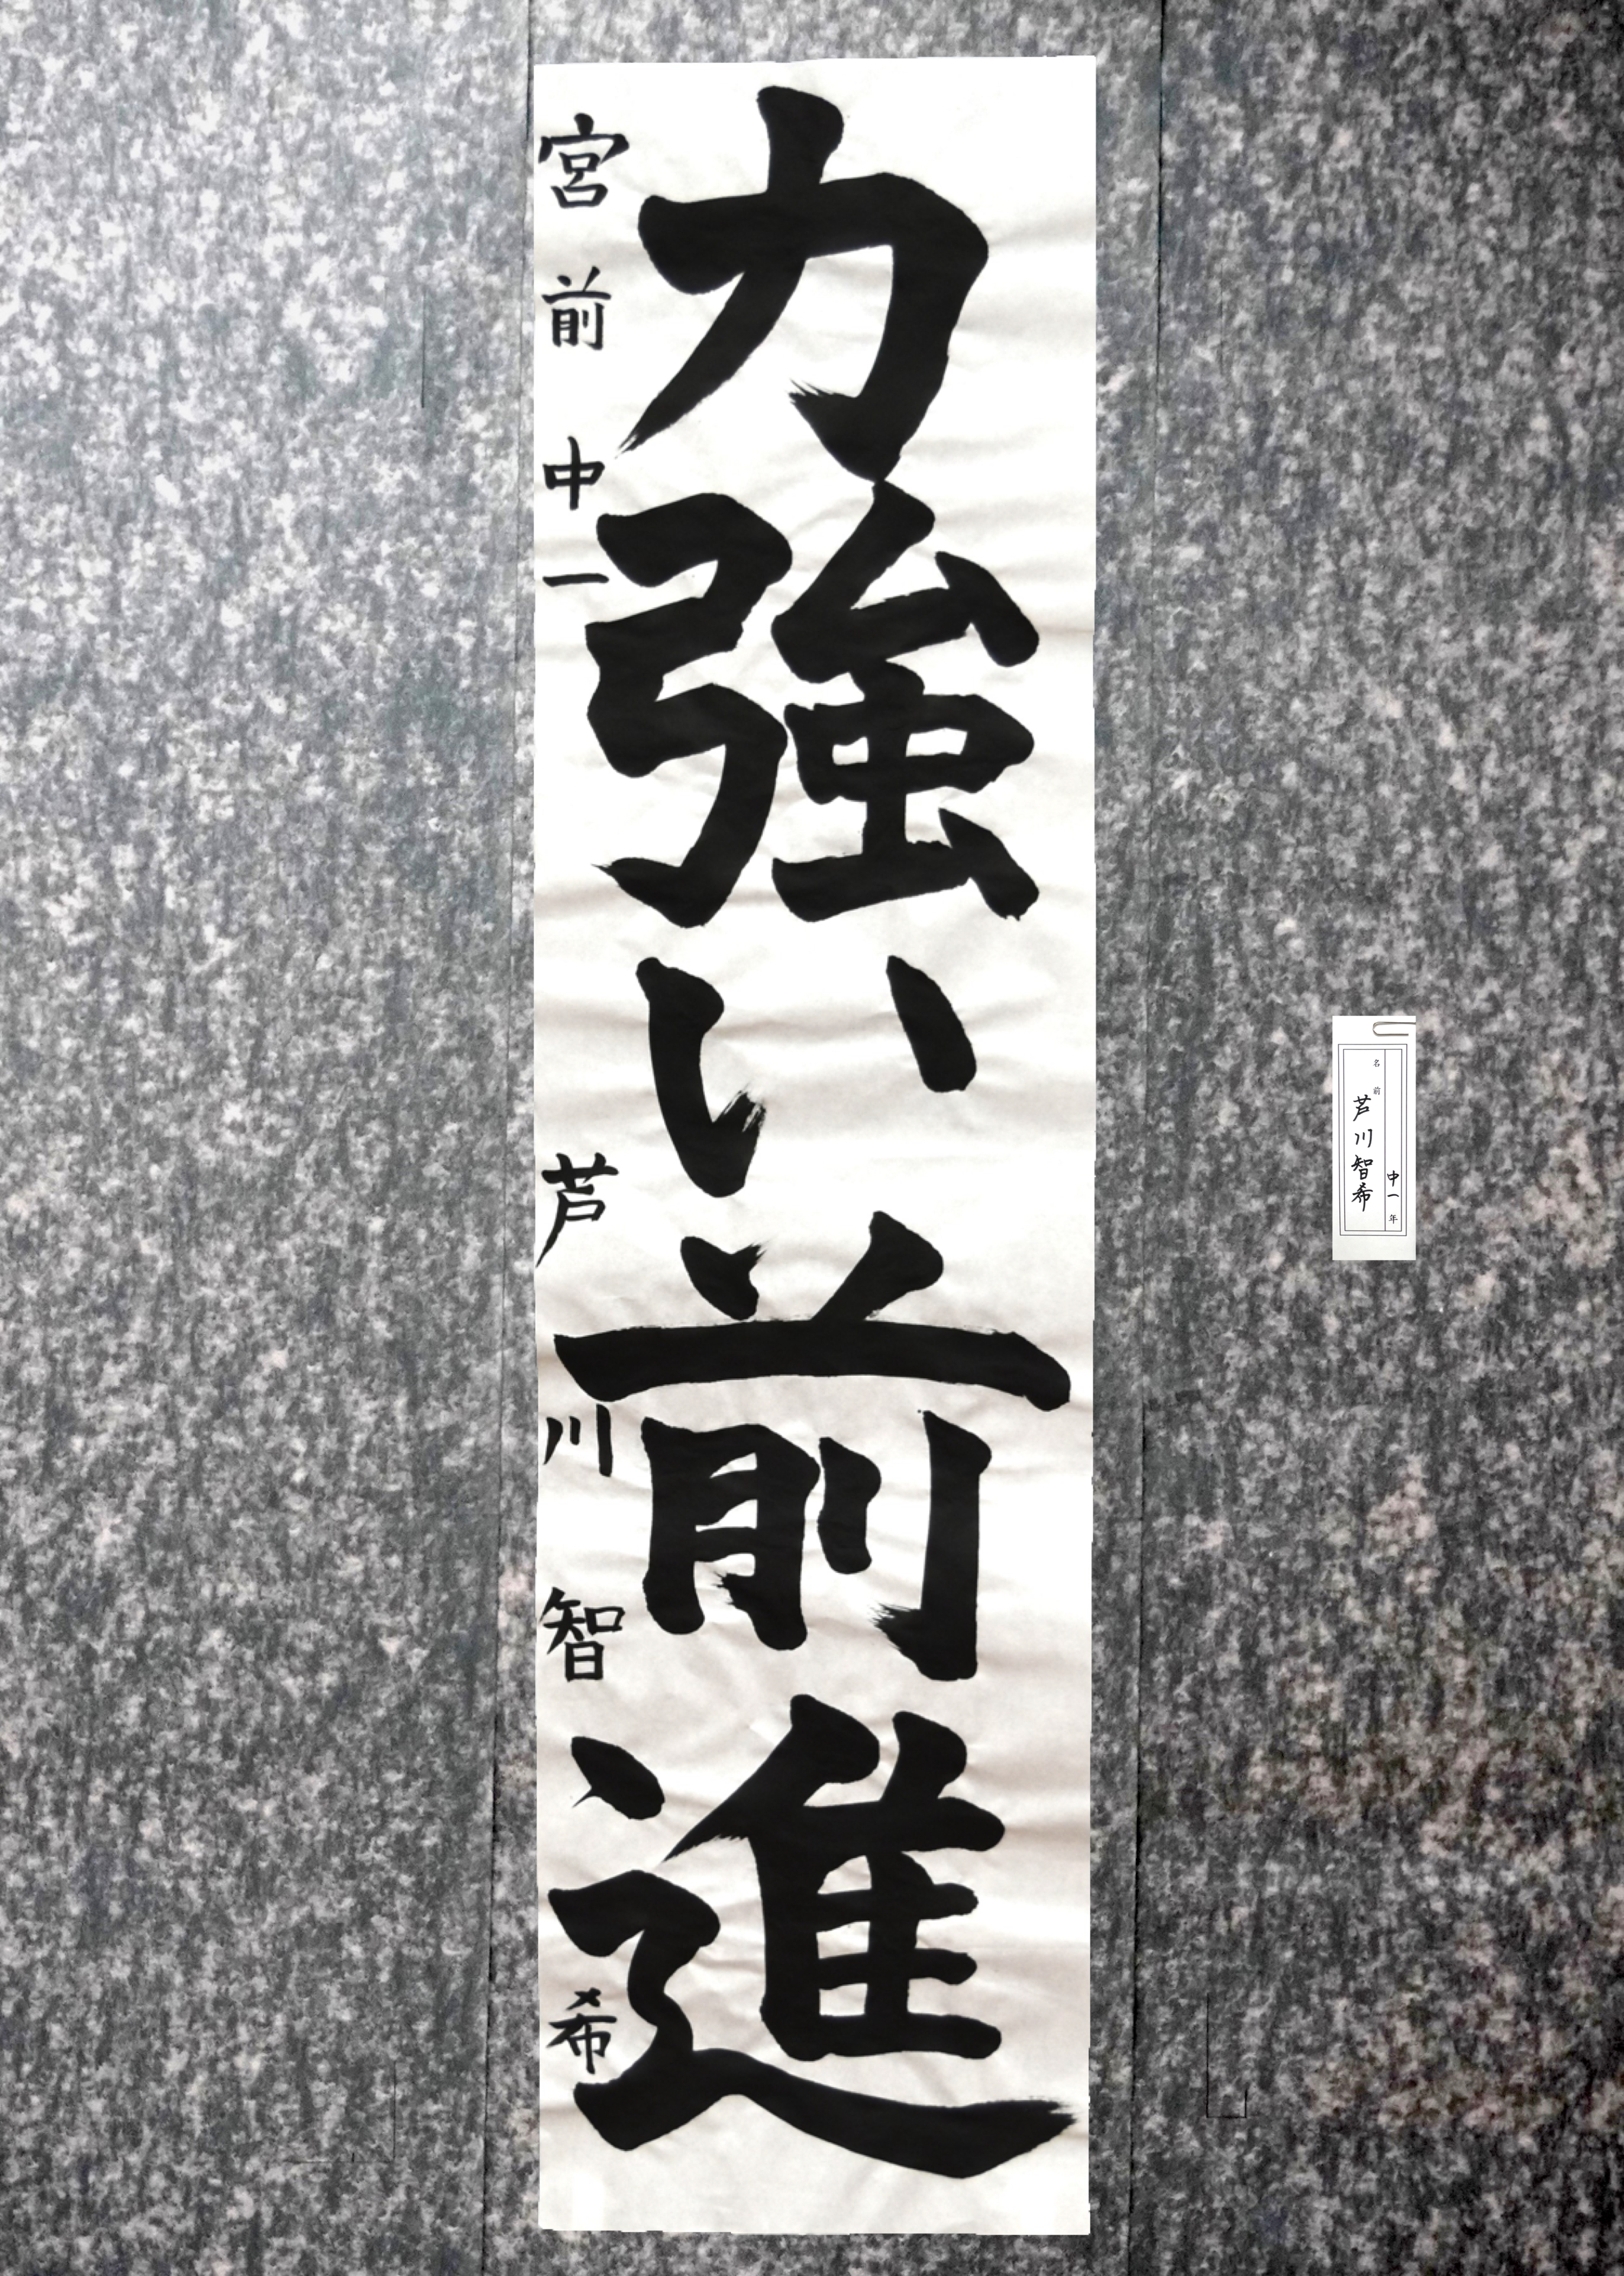 力強い前進
宮前中一 芦川智希
中一年
名前 芦川智希